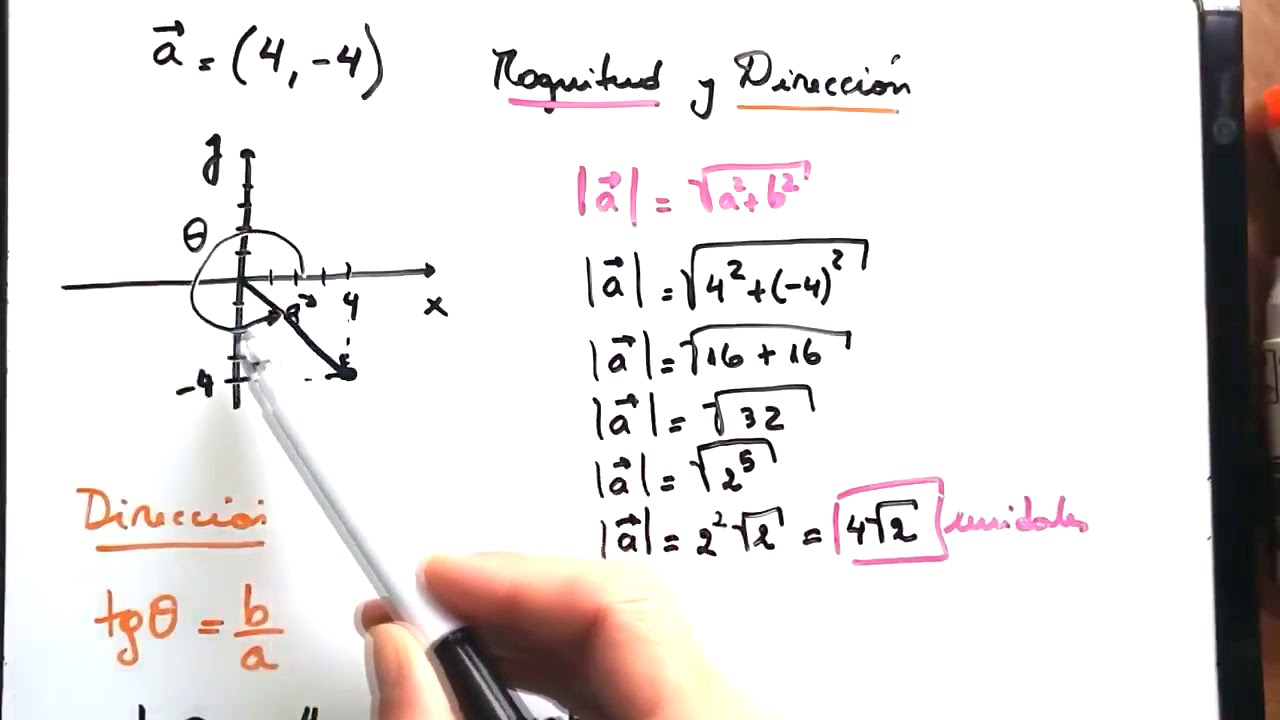 a⃗ = (4, -4)
Magnitud y Dirección
y
θ
a⃗
4
x
-4
|a⃗| = √(a²+b²)
|a⃗| = √(4²+(-4)²)
|a⃗| = √(16+16)
|a⃗| = √32
|a⃗| = √(2⁵)
|a⃗| = 2²√2 = 4√2 unidades
Dirección
tgθ = b/a